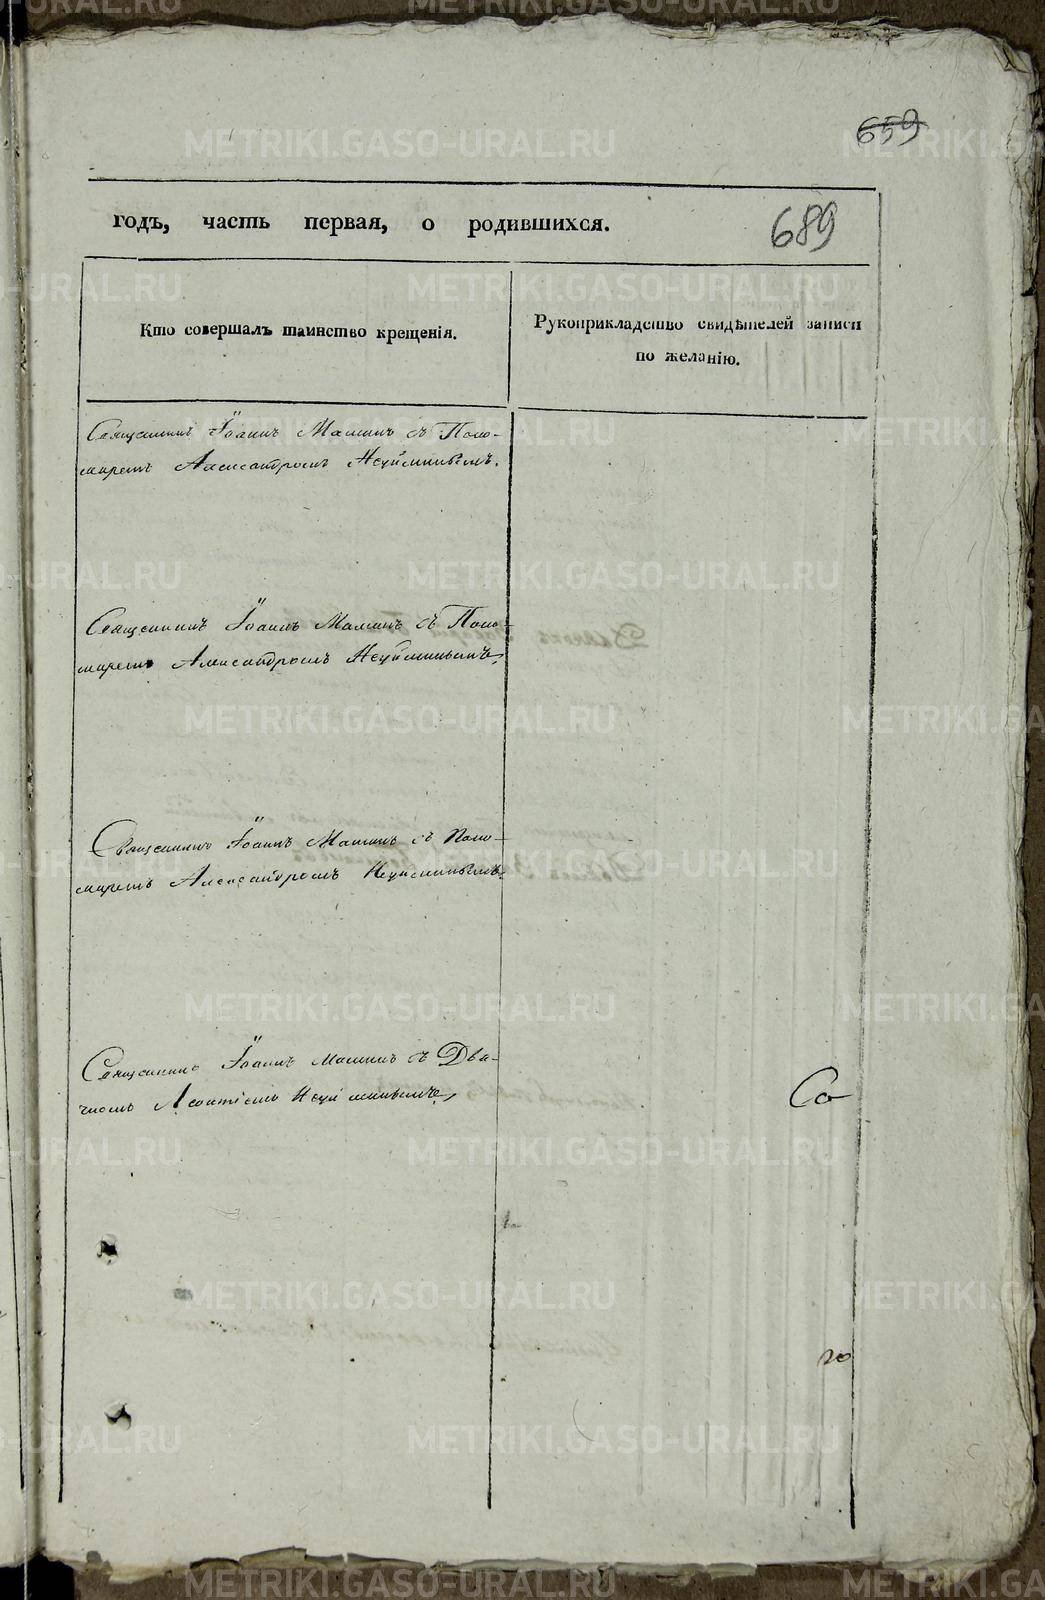 659
годъ, часть первая, о родившихся.
689
Кто совершалъ таинство крещенія.
Рукоприкладство свидѣтелей записи
по желанію.
Священникъ Іоаннъ Маминъ съ Поно-
маремъ Александромъ Неуйминымъ.
Священникъ Іоаннъ Маминъ съ Поно-
маремъ Александромъ Неуйминымъ,
Священникъ Іоаннъ Маминъ съ Поно-
маремъ Александромъ Неуйминымъ.
Священникъ Іоаннъ Маминъ съ Дья-
чкомъ Леонтіемъ Неуйминымъ,
Со
го
METRIKI.GASO-URAL.RU